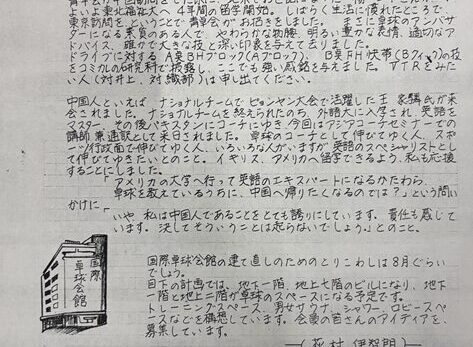 よいよ東北福祉大へ4年間の留学開始。しばらくして生活に慣れたところで、
東京訪問を、ということで青卓会がお招きをしました。まさに卓球のアンバサ
ダーになる素質のある人で、やわらかな物腰、明るい豊かな表情、適切なア
ドバイス、確かで大きな技と深い印象を与えて去りました。
ドライブに対するA妻BHブロック(Aブロック)、B妻FH快帯(Bクィック)の技
をコミカルの研究科で披露し、ここでも強い感銘を与えました。VTRをみた
い人(対井上、対織部)は申し出てください。
中国人といえば、ナショナルチームでピョンヤン大会で活躍した王家麟氏が来
会されました。ナショナルチームを終えられたのち、外語大に入学され、英語を
マスター、その後パキスタンにコーチにゆき、今回はアジアコーチセミナーでの
講師兼通訳として来日されました。卓球のコーチとして伸びてゆく人、スポ
ーツ行政面で伸びてゆく人、いろいろな人がいますが英語のスペシャリストとし
て伸びてゆきたいとのこと。イギリス、アメリカへ留学できるよう、私も応援
することにしました。
「アメリカの大学へ行って英語のエキスパートになるかたわら、
卓球を教えているうちに、中国へ帰りたくなるのでは?」という問い
かけに
「いや、私は中国人であることをとても誇りにしています。責任も感じて
います。決してそういうことは起らないでしょう。」とのこと。
国際卓球会館
国際卓球会館の建て直しのためのとりこわしは8月ぐらい
でしょう。
目下の計画では、地下一階、地上七階のビルになり、地下
一階と地上二階が卓球のスペースになる予定です。
トレーニングスペース、男女サウナ、シャワー、ロビースペ
ースなどを構想しています。会員の皆さんのアイディアを、
募集しています。
(荻村 伊智朗)